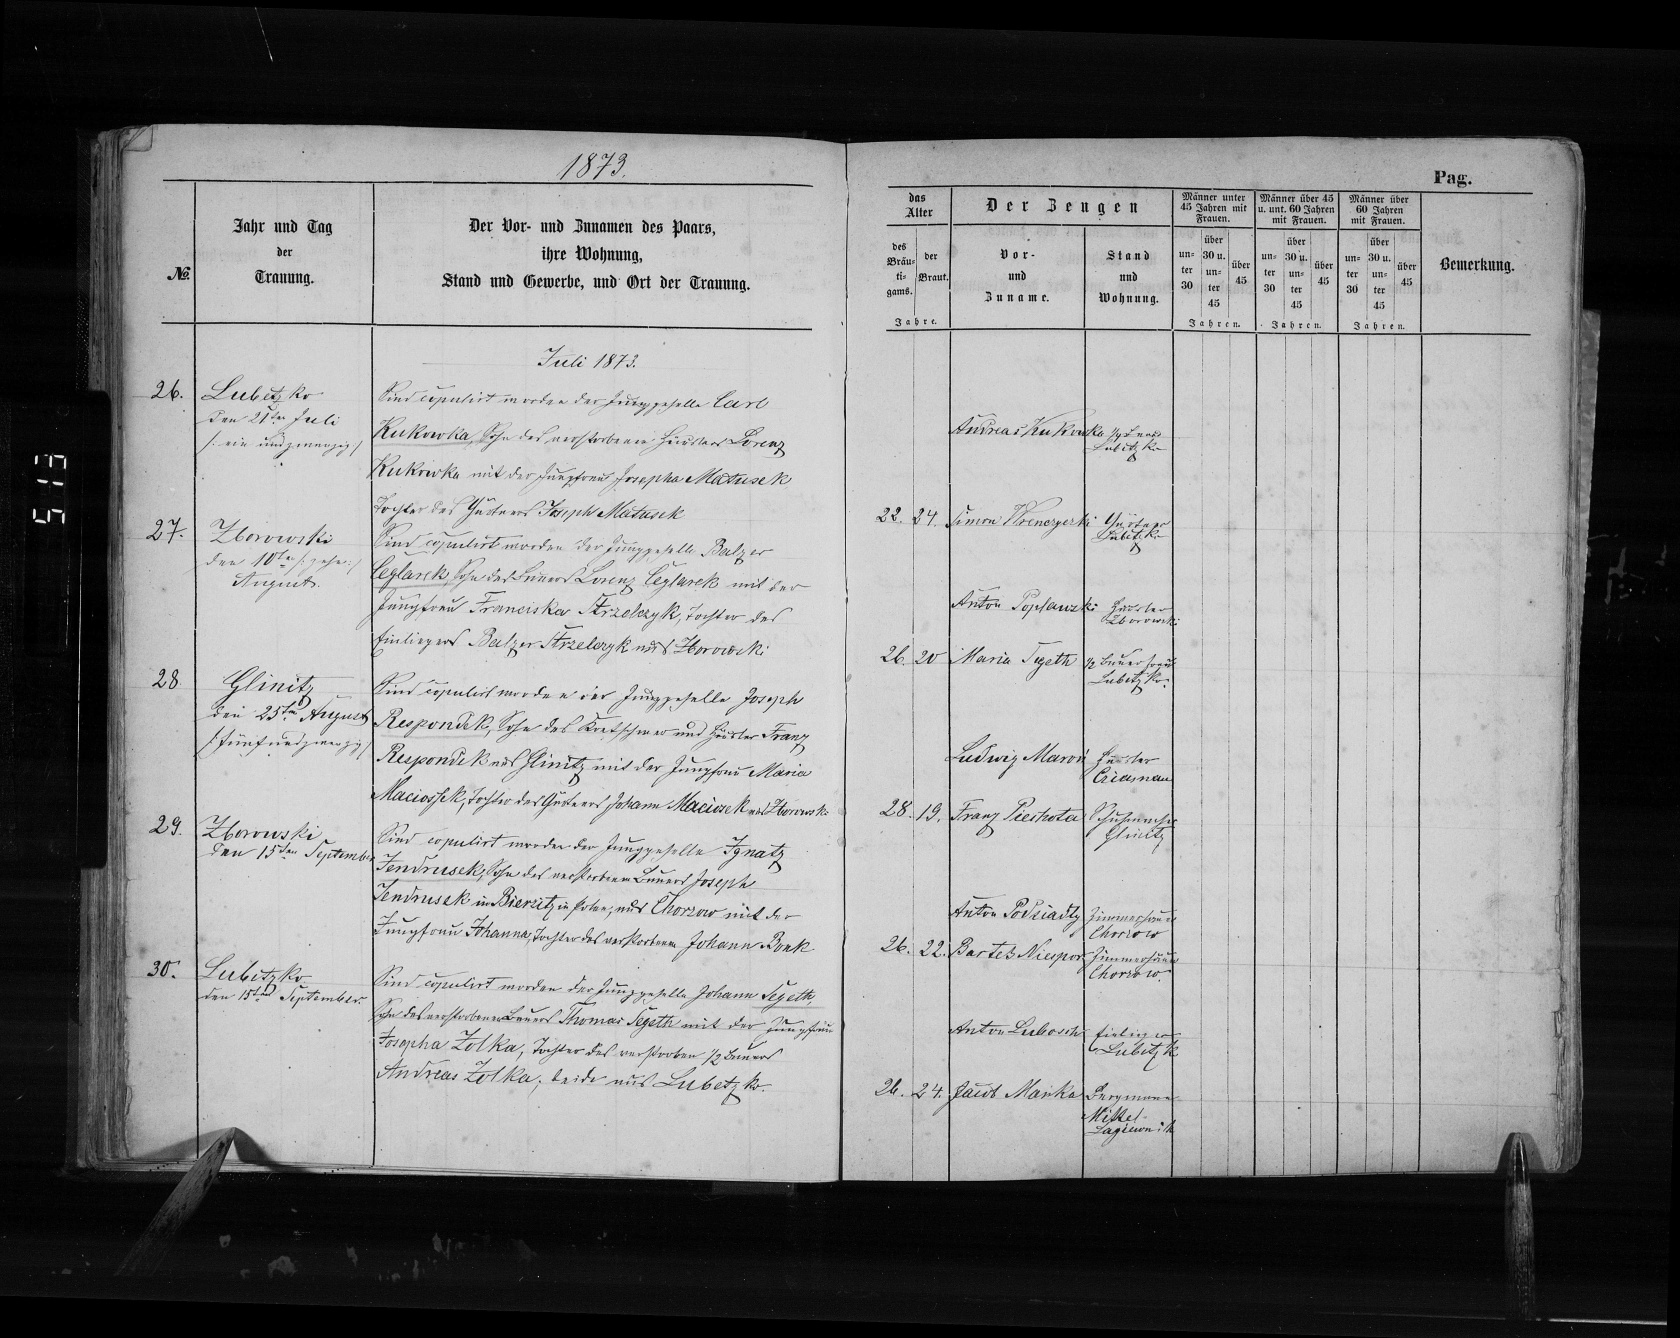 1873.
Pag.
№
Jahr und Tag
der
Trauung.
Der Vor- und Zunamen des Paars,
ihre Wohnung,
Stand und Gewerbe, und Ort der Trauung.
das
Alter
des
Bräu-
ti-
gams.
der
Braut.
Jahre.
Der Zeugen
Vor-
und
Zuname.
Stand
und
Wohnung.
Männer unter
45 Jahren mit
Frauen.
un-
ter
30
über
30 u.
un-
ter
45
über
45
Jahren.
Männer über 45
u. unt. 60 Jahren
mit Frauen.
un-
ter
30
über
30 u.
un-
ter
45
über
45
Jahren.
Männer über
60 Jahren
mit Frauen.
un-
ter
30
über
30 u.
un-
ter
45
über
45
Jahren.
Bemerkung.
Juli 1873.
26.
Lubetzko
den 21ten Juli
/: ein und zwanzig /
Sind copulirt worden der Junggeselle Carl
Kukowka, Sohn des verstorbenen Häusler Lorenz
Kukowka mit der Jungfrau Josepha Matusek
Tochter des Gärtners Joseph Matusek
22. 24.
Andreas Kukowka
Lubetzko
Simon Wrenczycki Gärtner
Lubetzko
27.
Zborowski
den 10ten /: zehn :/
August.
Sind copulirt worden der Junggeselle Balzer
Ceglarek, Sohn des Bauers Lorenz Ceglarek mit der
Jungfrau Franciska Strzelczyk, Tochter des
Einliegers Balzer Strzelczyk aus Zborowski
26 20
Anton Poplauzki Häusler
Zborowski
Maria Segeth ½ Bauersfrau
Lubetzko.
28
Glinitz
den 25ten August
/: fünfundzwanzig /
Sind copulirt worden der Junggeselle Joseph
Respondek, Sohn des Kretschmer und Häusler Franz
Respondek aus Glinitz mit der Jungfrau Maria
Maciossek, Tochter des Gärtners Johann Maciosek aus Zborowski
28. 19.
Ludwig Maroń Häusler
Franz Pieshota Schuhmacher
Glinitz
29.
Zborowski
den 15ten September
Sind copulirt worden der Junggeselle Ignatz
Jendrusek, Sohn des verstorbenen Bauers Joseph
Jendrusek in Bierzitz in Polen, aus Chorzow mit der
Jungfrau Johanna, Tochter des verstorbenen Johann Bonk
26. 22.
Anton Podsiadly
Chorzow
Bartek Niespor
Chorzow
30.
Lubetzko
den 15ten September.
Sind copulirt worden der Junggeselle Johann Segeth,
Sohn des verstorbenen Bauers Thomas Segeth mit der Jungfrau
Josepha Zolka, Tochter des verstorben ½ Bauers
Andreas Zolka, beide aus Lubetzko.
26. 24.
Anton Lubosch Einlieger
Lubetzk
Jacob Manka Bergmann
Mittel-
Lagiewnik